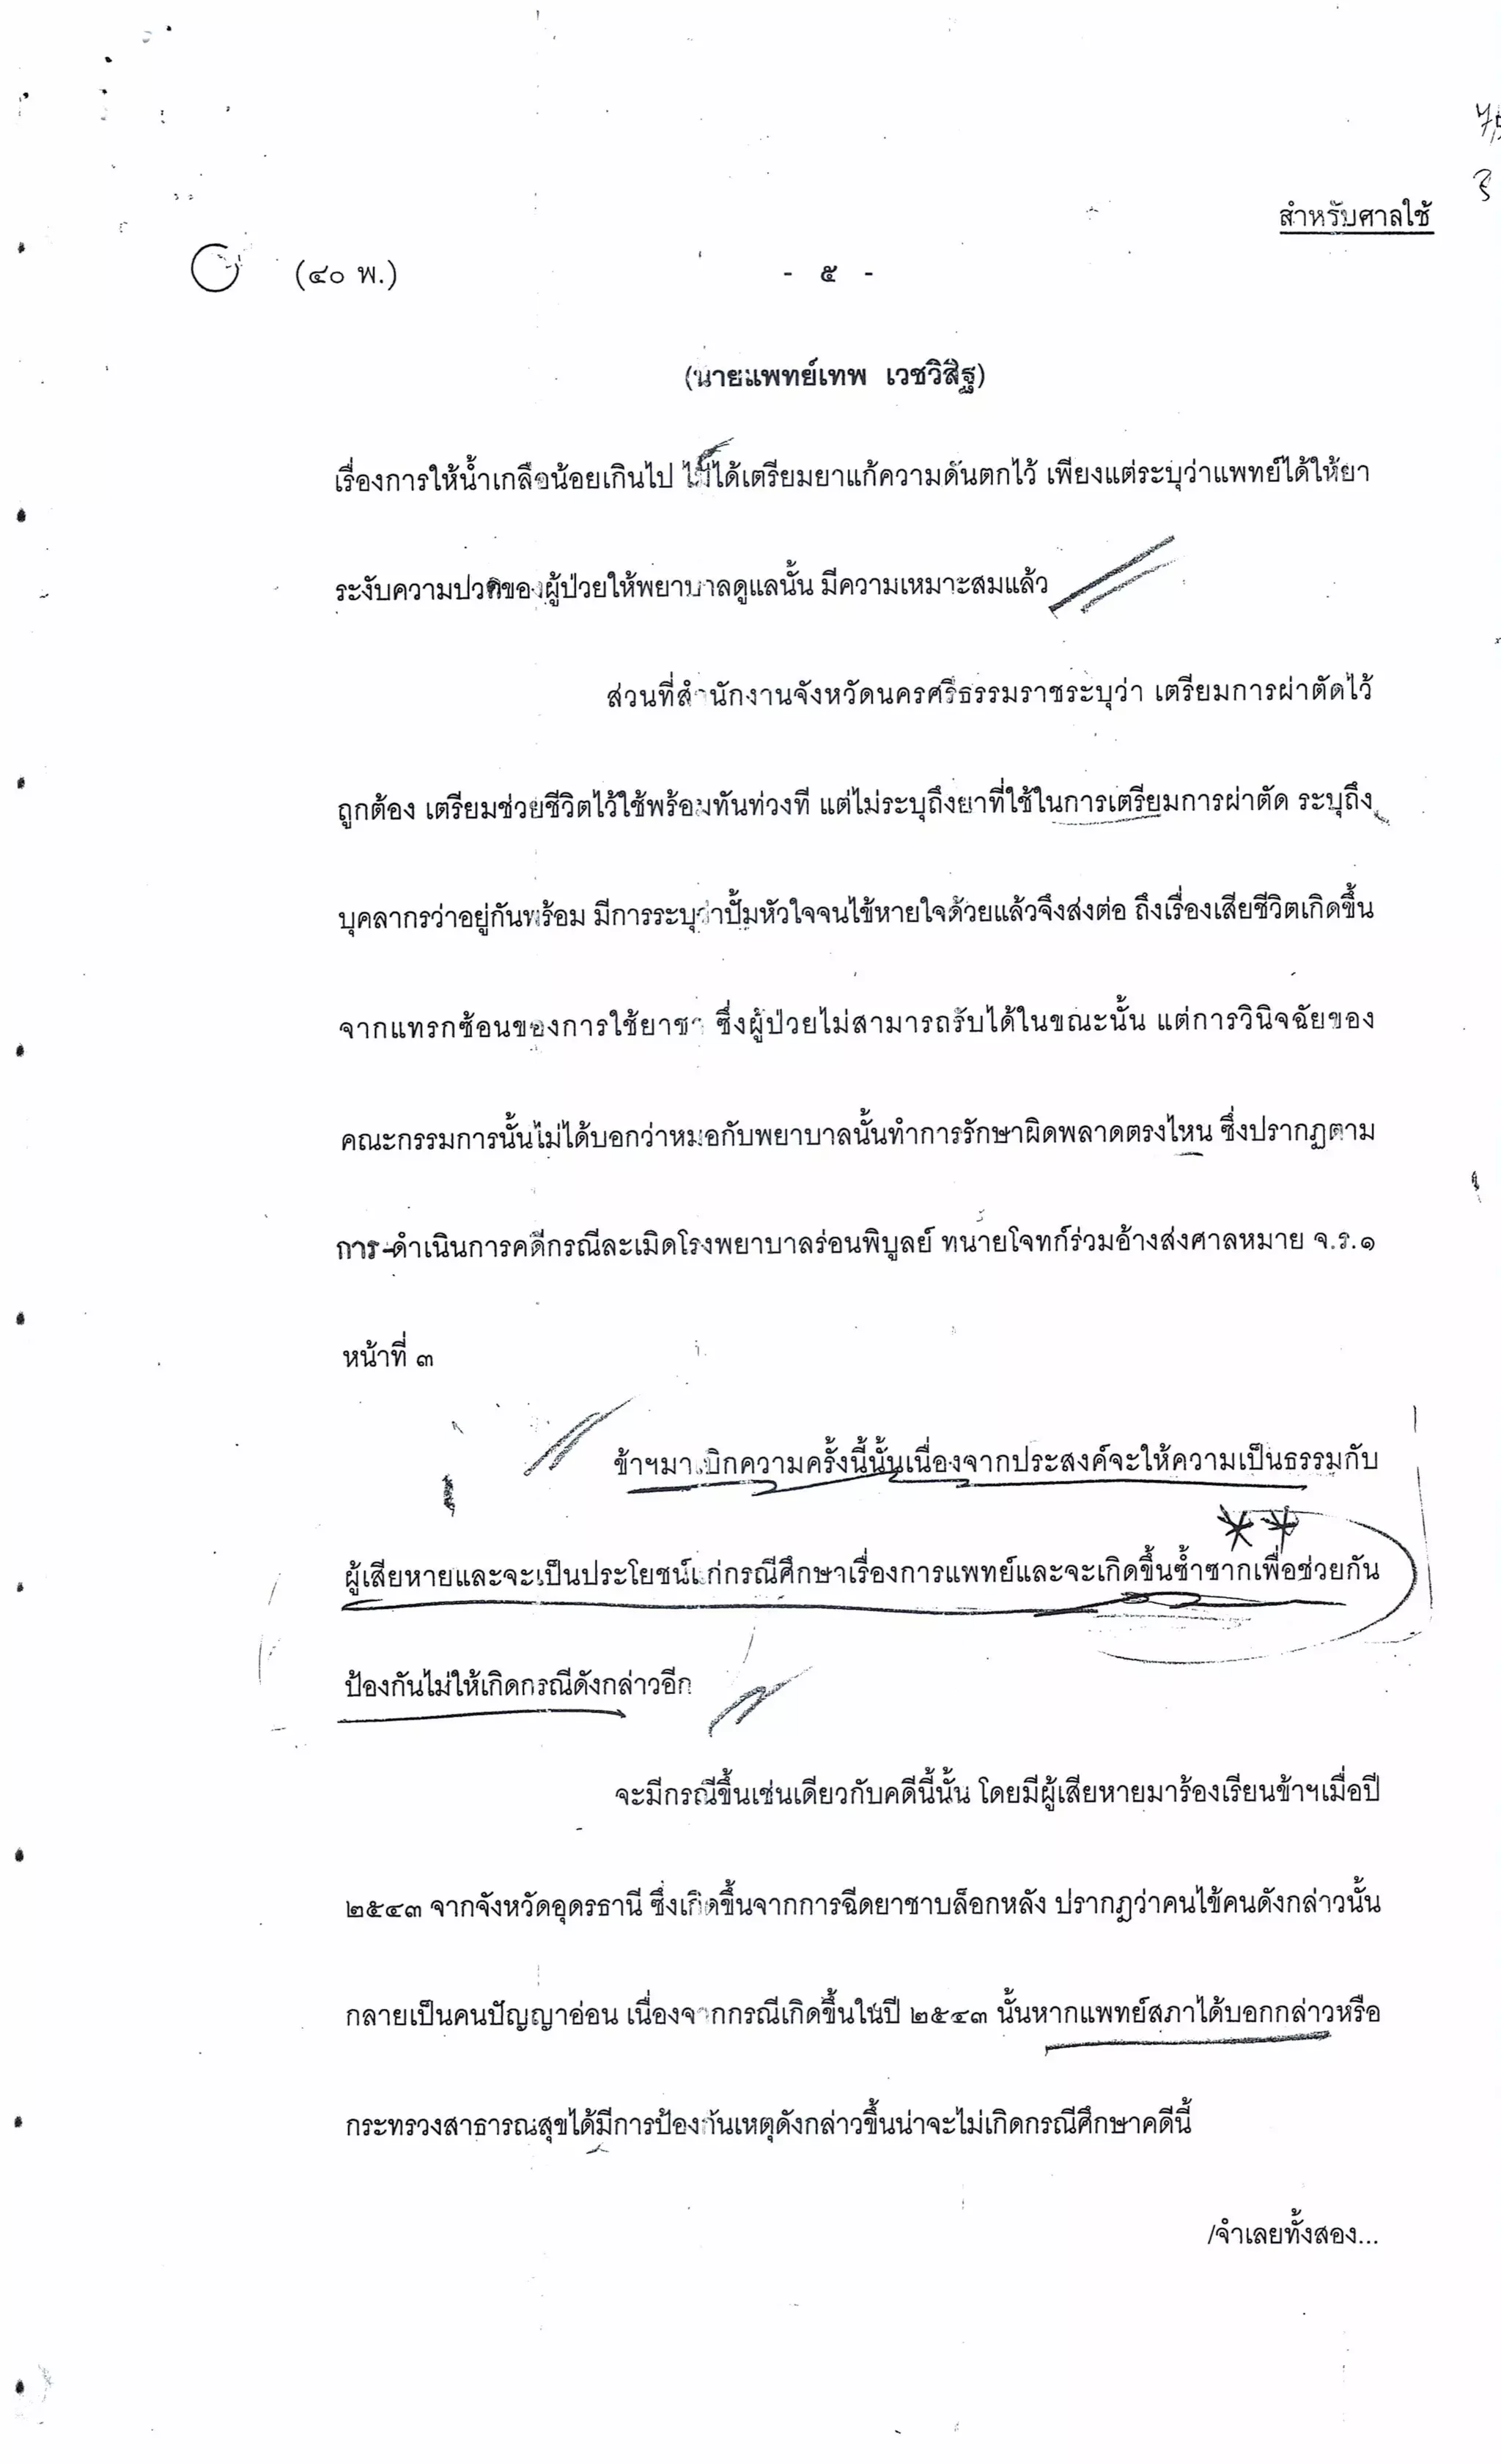 สำหรับศาลใช้
(๔๐ พ.) - ๕ -
(นายแพทย์เทพ เวชวิสิฐ)
เรื่องการให้น้ำเกลือน้อยเกินไป ไม่ได้เตรียมยาแก้ความดันตกไว้ เพียงแต่ระบุว่าแพทย์ได้ให้ยา
ระงับความปวดของผู้ป่วยให้พยาบาลดูแลนั้น มีความเหมาะสมแล้ว
ส่วนที่สำนักงานจังหวัดนครศรีธรรมราชระบุว่า เตรียมการผ่าตัดไว้
ถูกต้อง เตรียมช่วยชีวิตไว้ใช้พร้อมทันท่วงที แต่ไม่ระบุถึงยาที่ใช้ในการเตรียมการผ่าตัด ระบุถึง
บุคลากรว่าอยู่กันพร้อม มีการระบุว่าปั้มหัวใจจนไข้หายใจด้วยแล้วจึงส่งต่อ ถึงเรื่องเสียชีวิตเกิดขึ้น
จากแทรกซ้อนของการใช้ยาชา ซึ่งผู้ป่วยไม่สามารถรับได้ในขณะนั้น แต่การวินิจฉัยของ
คณะกรรมการนั้นไม่ได้บอกว่าหมอกับพยาบาลนั้นทำการรักษาผิดพลาดตรงไหน ซึ่งปรากฏตาม
การดำเนินการคดีกรณีละเมิดโรงพยาบาลร่อนพิบูลย์ ทนายโจทก์ร่วมอ้างส่งศาลหมาย จ.ร.๑
หน้าที่ ๓
ข้าฯมาเบิกความครั้งนี้นั้นเนื่องจากประสงค์จะให้ความเป็นธรรมกับ
ผู้เสียหายและจะเป็นประโยชน์แก่กรณีศึกษาเรื่องการแพทย์และจะเกิดขึ้นซ้ำซากเพื่อช่วยกัน
ป้องกันไม่ให้เกิดกรณีดังกล่าวอีก
จะมีกรณีขึ้นเช่นเดียวกับคดีนี้นั้น โดยมีผู้เสียหายมาร้องเรียนข้าฯเมื่อปี
๒๕๔๓ จากจังหวัดอุดรธานี ซึ่งเกิดขึ้นจากการฉีดยาชาบล็อกหลัง ปรากฏว่าคนไข้คนดังกล่าวนั้น
กลายเป็นคนปัญญาอ่อน เนื่องจากกรณีเกิดขึ้นในปี ๒๕๔๓ นั้นหากแพทย์สภาได้บอกกล่าวหรือ
กระทรวงสาธารณสุขได้มีการป้องกันเหตุดังกล่าวขึ้นน่าจะไม่เกิดกรณีศึกษาคดีนี้
/จำเลยทั้งสอง...